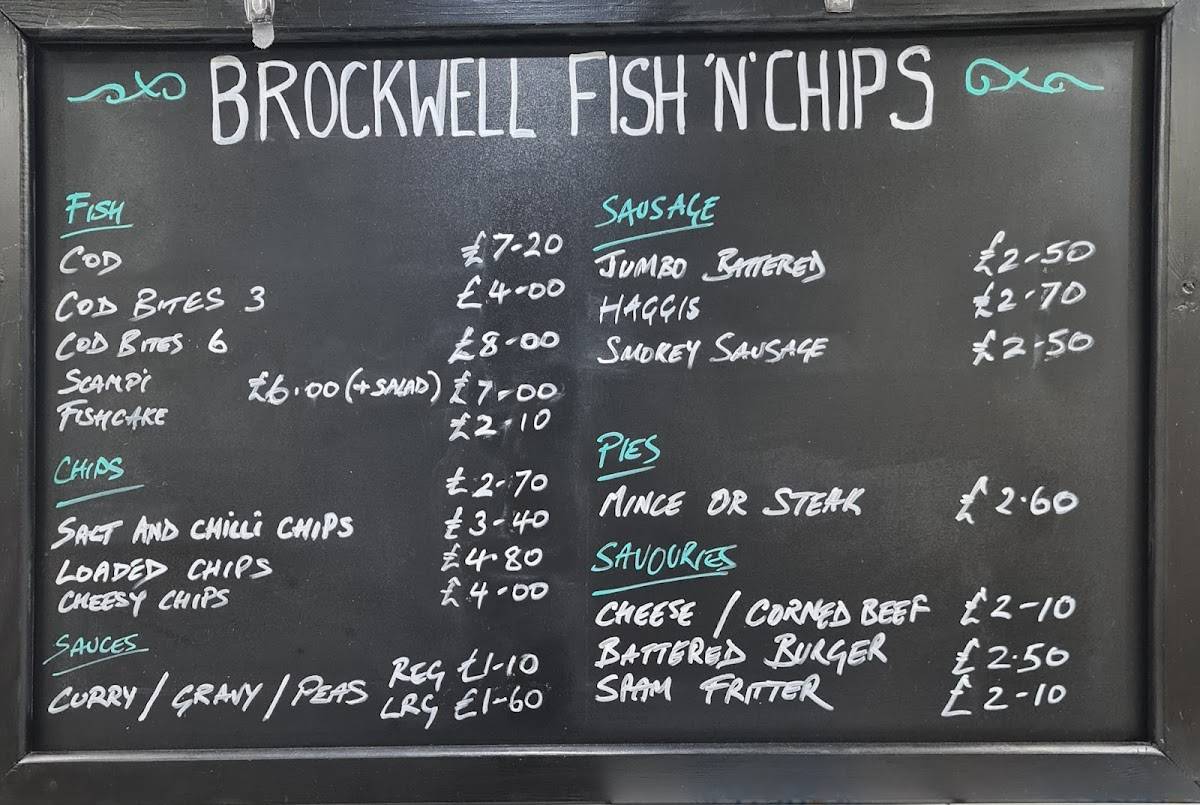 BROCKWELL FISH 'N' CHIPS
FISH
COD £7-20
COD BITES 3 £4-00
COD BITES 6 £8-00
SCAMPI £6.00 (+SALAD) £7-00
FISHCAKE £2-10
CHIPS £2-70
SALT AND CHILLI CHIPS £3-40
LOADED CHIPS £4-80
CHEESY CHIPS £4-00
SAUCES
CURRY / GRAVY / PEAS REG £1-10
LRG £1-60
SAUSAGE
JUMBO BATTERED £2-50
HAGGIS £2-70
SMOKEY SAUSAGE £2-50
PIES
MINCE OR STEAK £2.60
SAVOURIES
CHEESE / CORNED BEEF £2-10
BATTERED BURGER £2.50
SPAM FRITTER £2-10